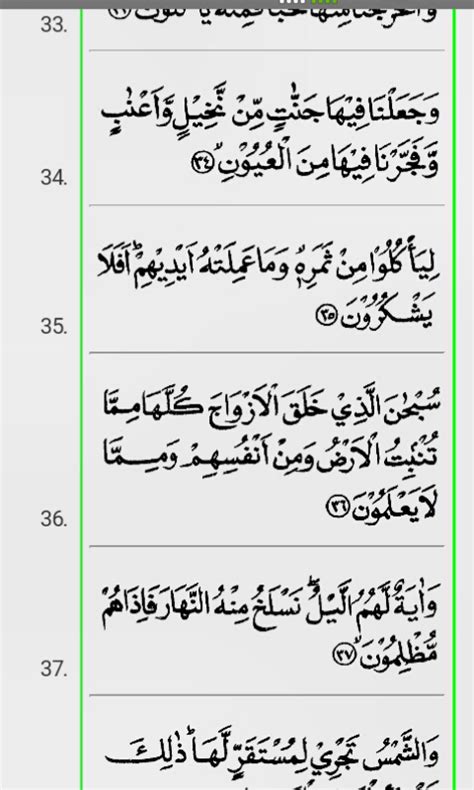 33.
وَجَعَلْنَا فِيْهَا جَنّٰتٍ مِّنْ نَّخِيْلٍ وَّاَعْنٰبٍ
وَّفَجَّرْنَا فِيْهَا مِنَ الْعُيُوْنِۙ ﴿٣٤﴾
34.
لِيَاْكُلُوْا مِنْ ثَمَرِهٖۙ وَمَا عَمِلَتْهُ اَيْدِيْهِمْؕ اَفَلَا
يَشْكُرُوْنَ ﴿٣٥﴾
35.
سُبْحٰنَ الَّذِيْ خَلَقَ الْاَزْوَاجَ كُلَّهَا مِمَّا
تُنْۢبِتُ الْاَرْضُ وَمِنْ اَنْفُسِهِمْ وَمِمَّا
لَا يَعْلَمُوْنَ ﴿٣٦﴾
36.
وَاٰيَةٌ لَّهُمُ الَّيْلُۖۚ نَسْلَخُ مِنْهُ النَّهَارَ فَاِذَا هُمْ
مُّظْلِمُوْنَۙ ﴿٣٧﴾
37.
وَالشَّمْسُ تَجْرِيْ لِمُسْتَقَرٍّ لَّهَاؕ ذٰلِكَ